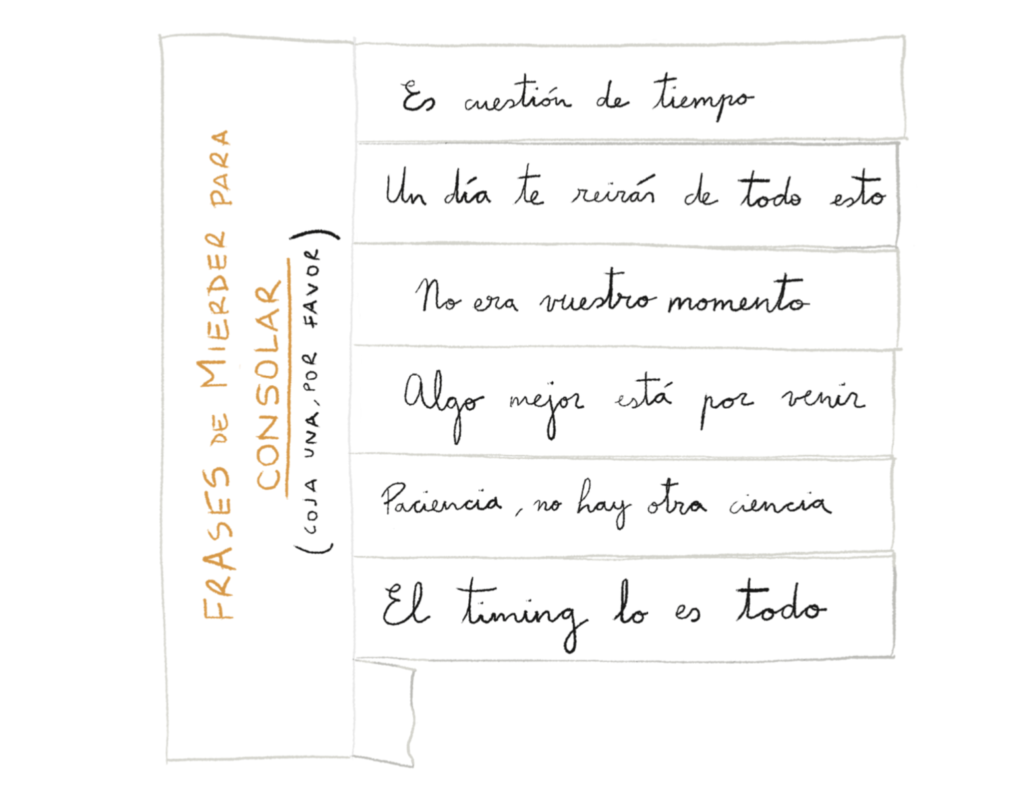 FRASES DE MIERDER PARA
CONSOLAR
(COJA UNA, POR FAVOR)
Es cuestión de tiempo
Un día te reirás de todo esto
No era vuestro momento
Algo mejor está por venir
Paciencia, no hay otra ciencia
El timing lo es todo